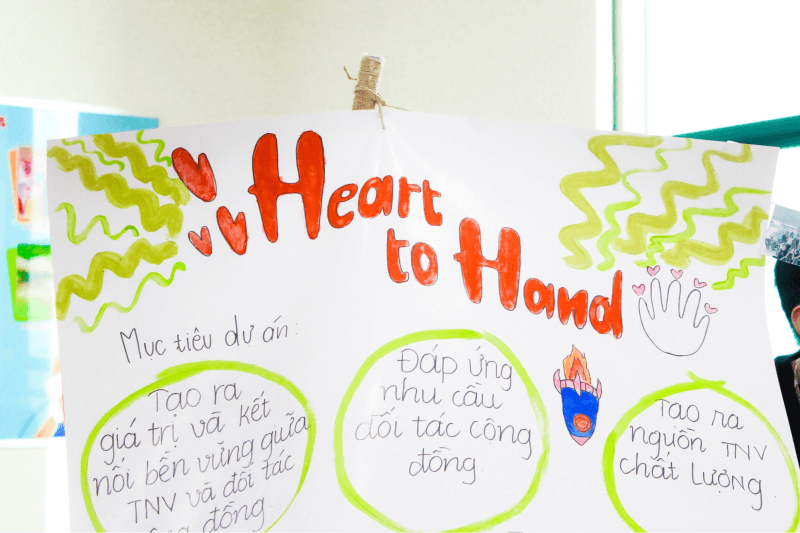 Heart
to Hand
Mục tiêu dự án:
Tạo ra
giá trị và kết
nối bền vững giữa
TNV và đối tác
đồng
Đáp ứng
nhu cầu
đối tác cộng
đồng
Tạo ra
nguồn TNV
chất lượng